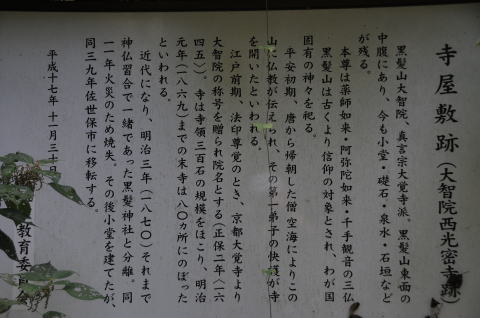 寺屋敷跡(大智院西光密寺跡)
黒髪山大智院、真言宗大覚寺派、黒髪山東面の
中腹にあり、今も小堂・礎石・泉水・石垣など
が残る。
本尊は薬師如来・阿弥陀如来・千手観音の三仏
黒髪山は古くより信仰の対象とされ、わが国
固有の神々を祀る。
平安初期、唐から帰朝した僧空海によりこの
山に仏教が伝えられ、その第一弟子の快護が寺
を開いたといわれる。
江戸前期、法印尊覚のとき、京都大覚寺より
大智院の称号を贈られ院名とする(正保二年〈一六
四五〉)。寺は寺領三百石の規模をほこり、明治
元年(一八六九)までの末寺は八〇カ所にのぼった
といわれる。
近代になり、明治三年(一八七〇)それまで
神仏習合で一緒であった黒髪神社と分離。同
一一年火災のため焼失。その後小堂を建てたが、
同三九年佐世保市に移転する。
平成十七年十一月三十日
教育委員会